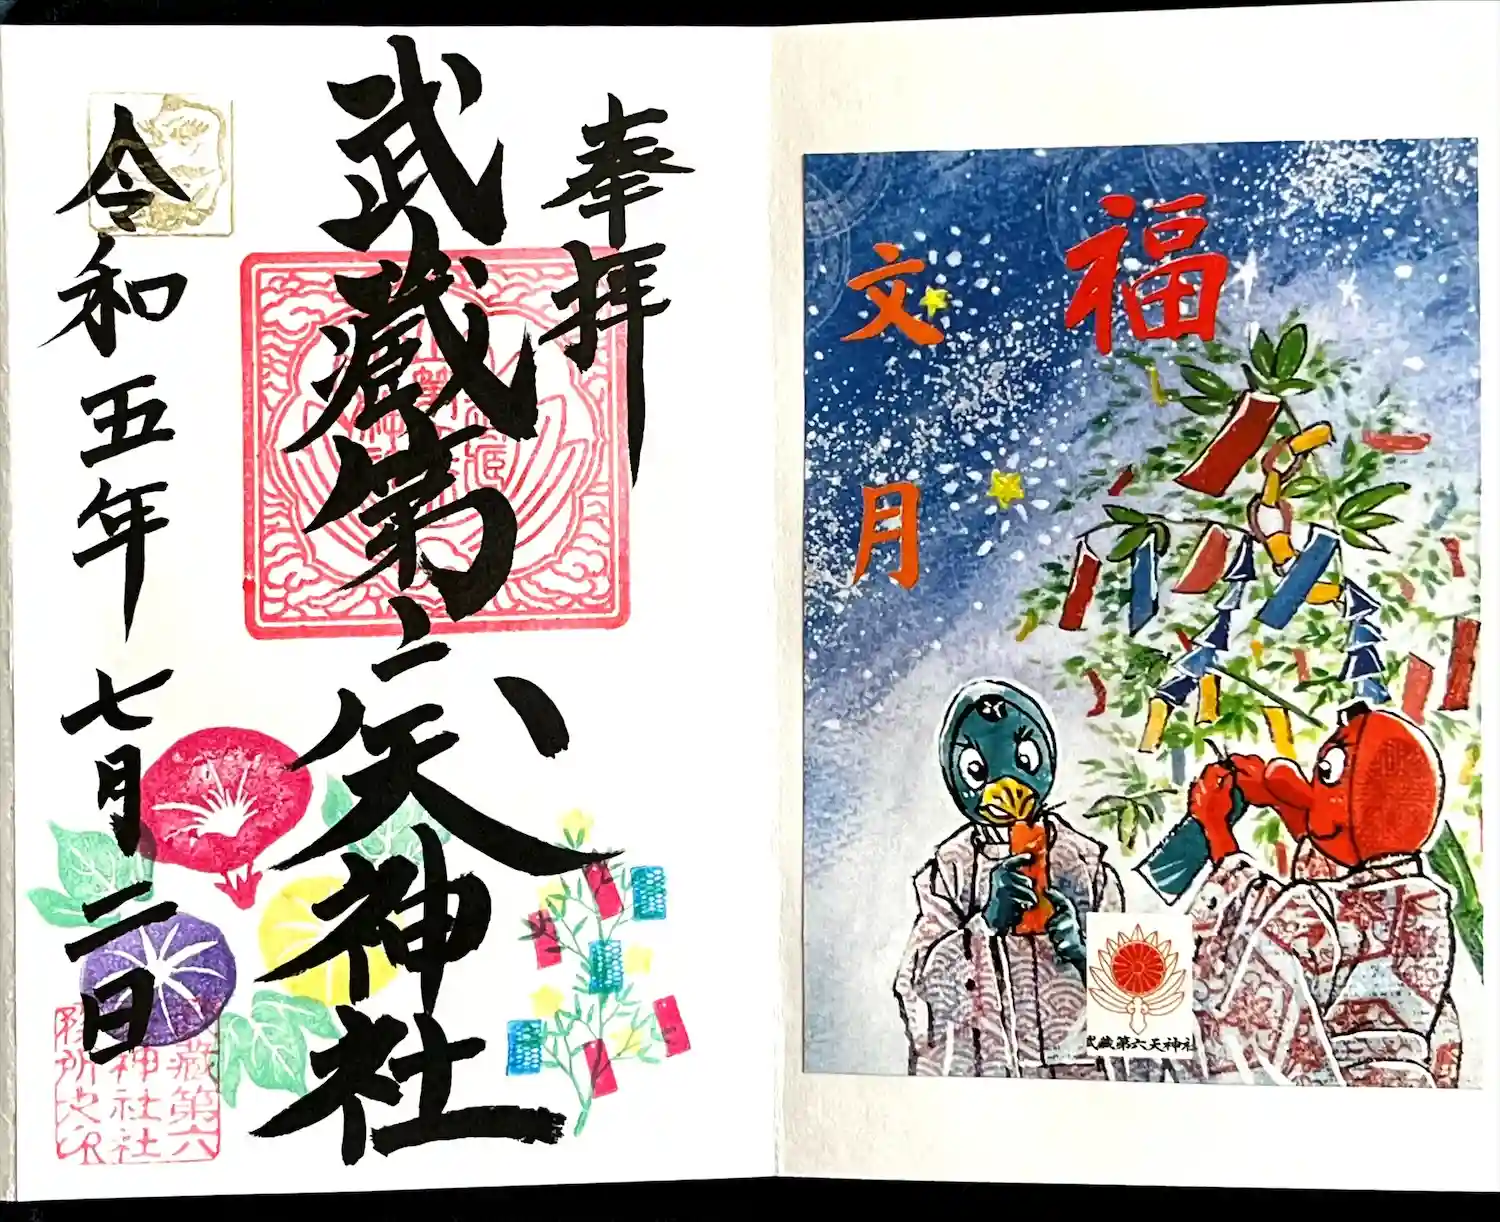 奉拝
武蔵第六天神社
令和五年七月二日
蔵第六
神社社
務所之印
福
文月
武蔵第六天神社